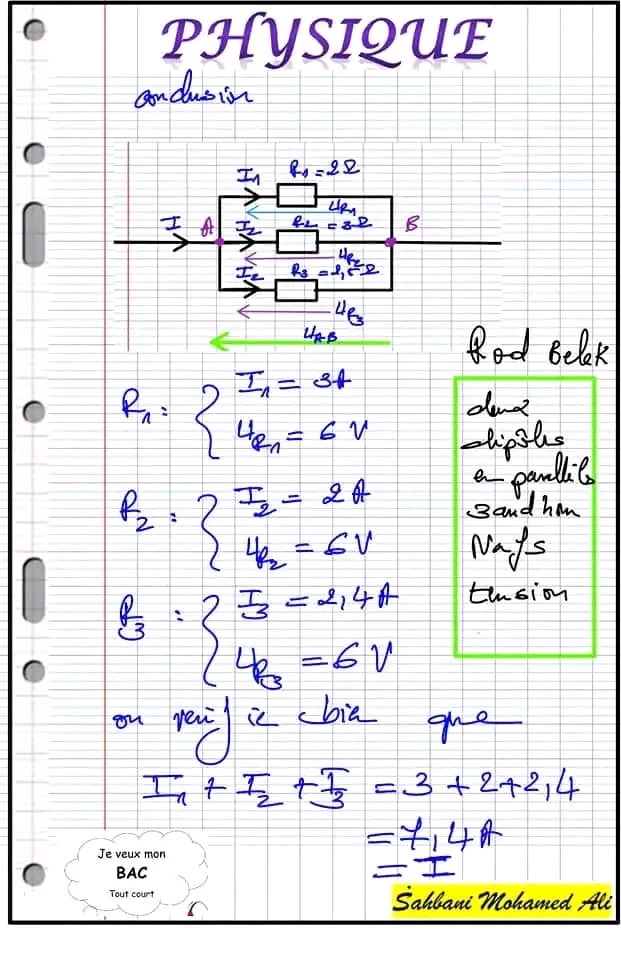 PHYSIQUE
conclusion
I1 R1 = 2Ω
UR1
I A I2 R2 = 3Ω B
UR2
I2 R3 = 2,5Ω
UR3
UAB
Rod Belek
deux
dipôles
en parallèle
3andhom
Nafs
tension
R1 : { I1 = 3A
UR1 = 6 V
R2 : { I2 = 2A
UR2 = 6V
R3 : { I3 = 2,4A
UR3 = 6 V
on verifie bien que
I1 + I2 + I3 = 3 + 2 + 2,4
= 7,4A
= I
Je veux mon
BAC
Tout court
Sahbani Mohamed Ali